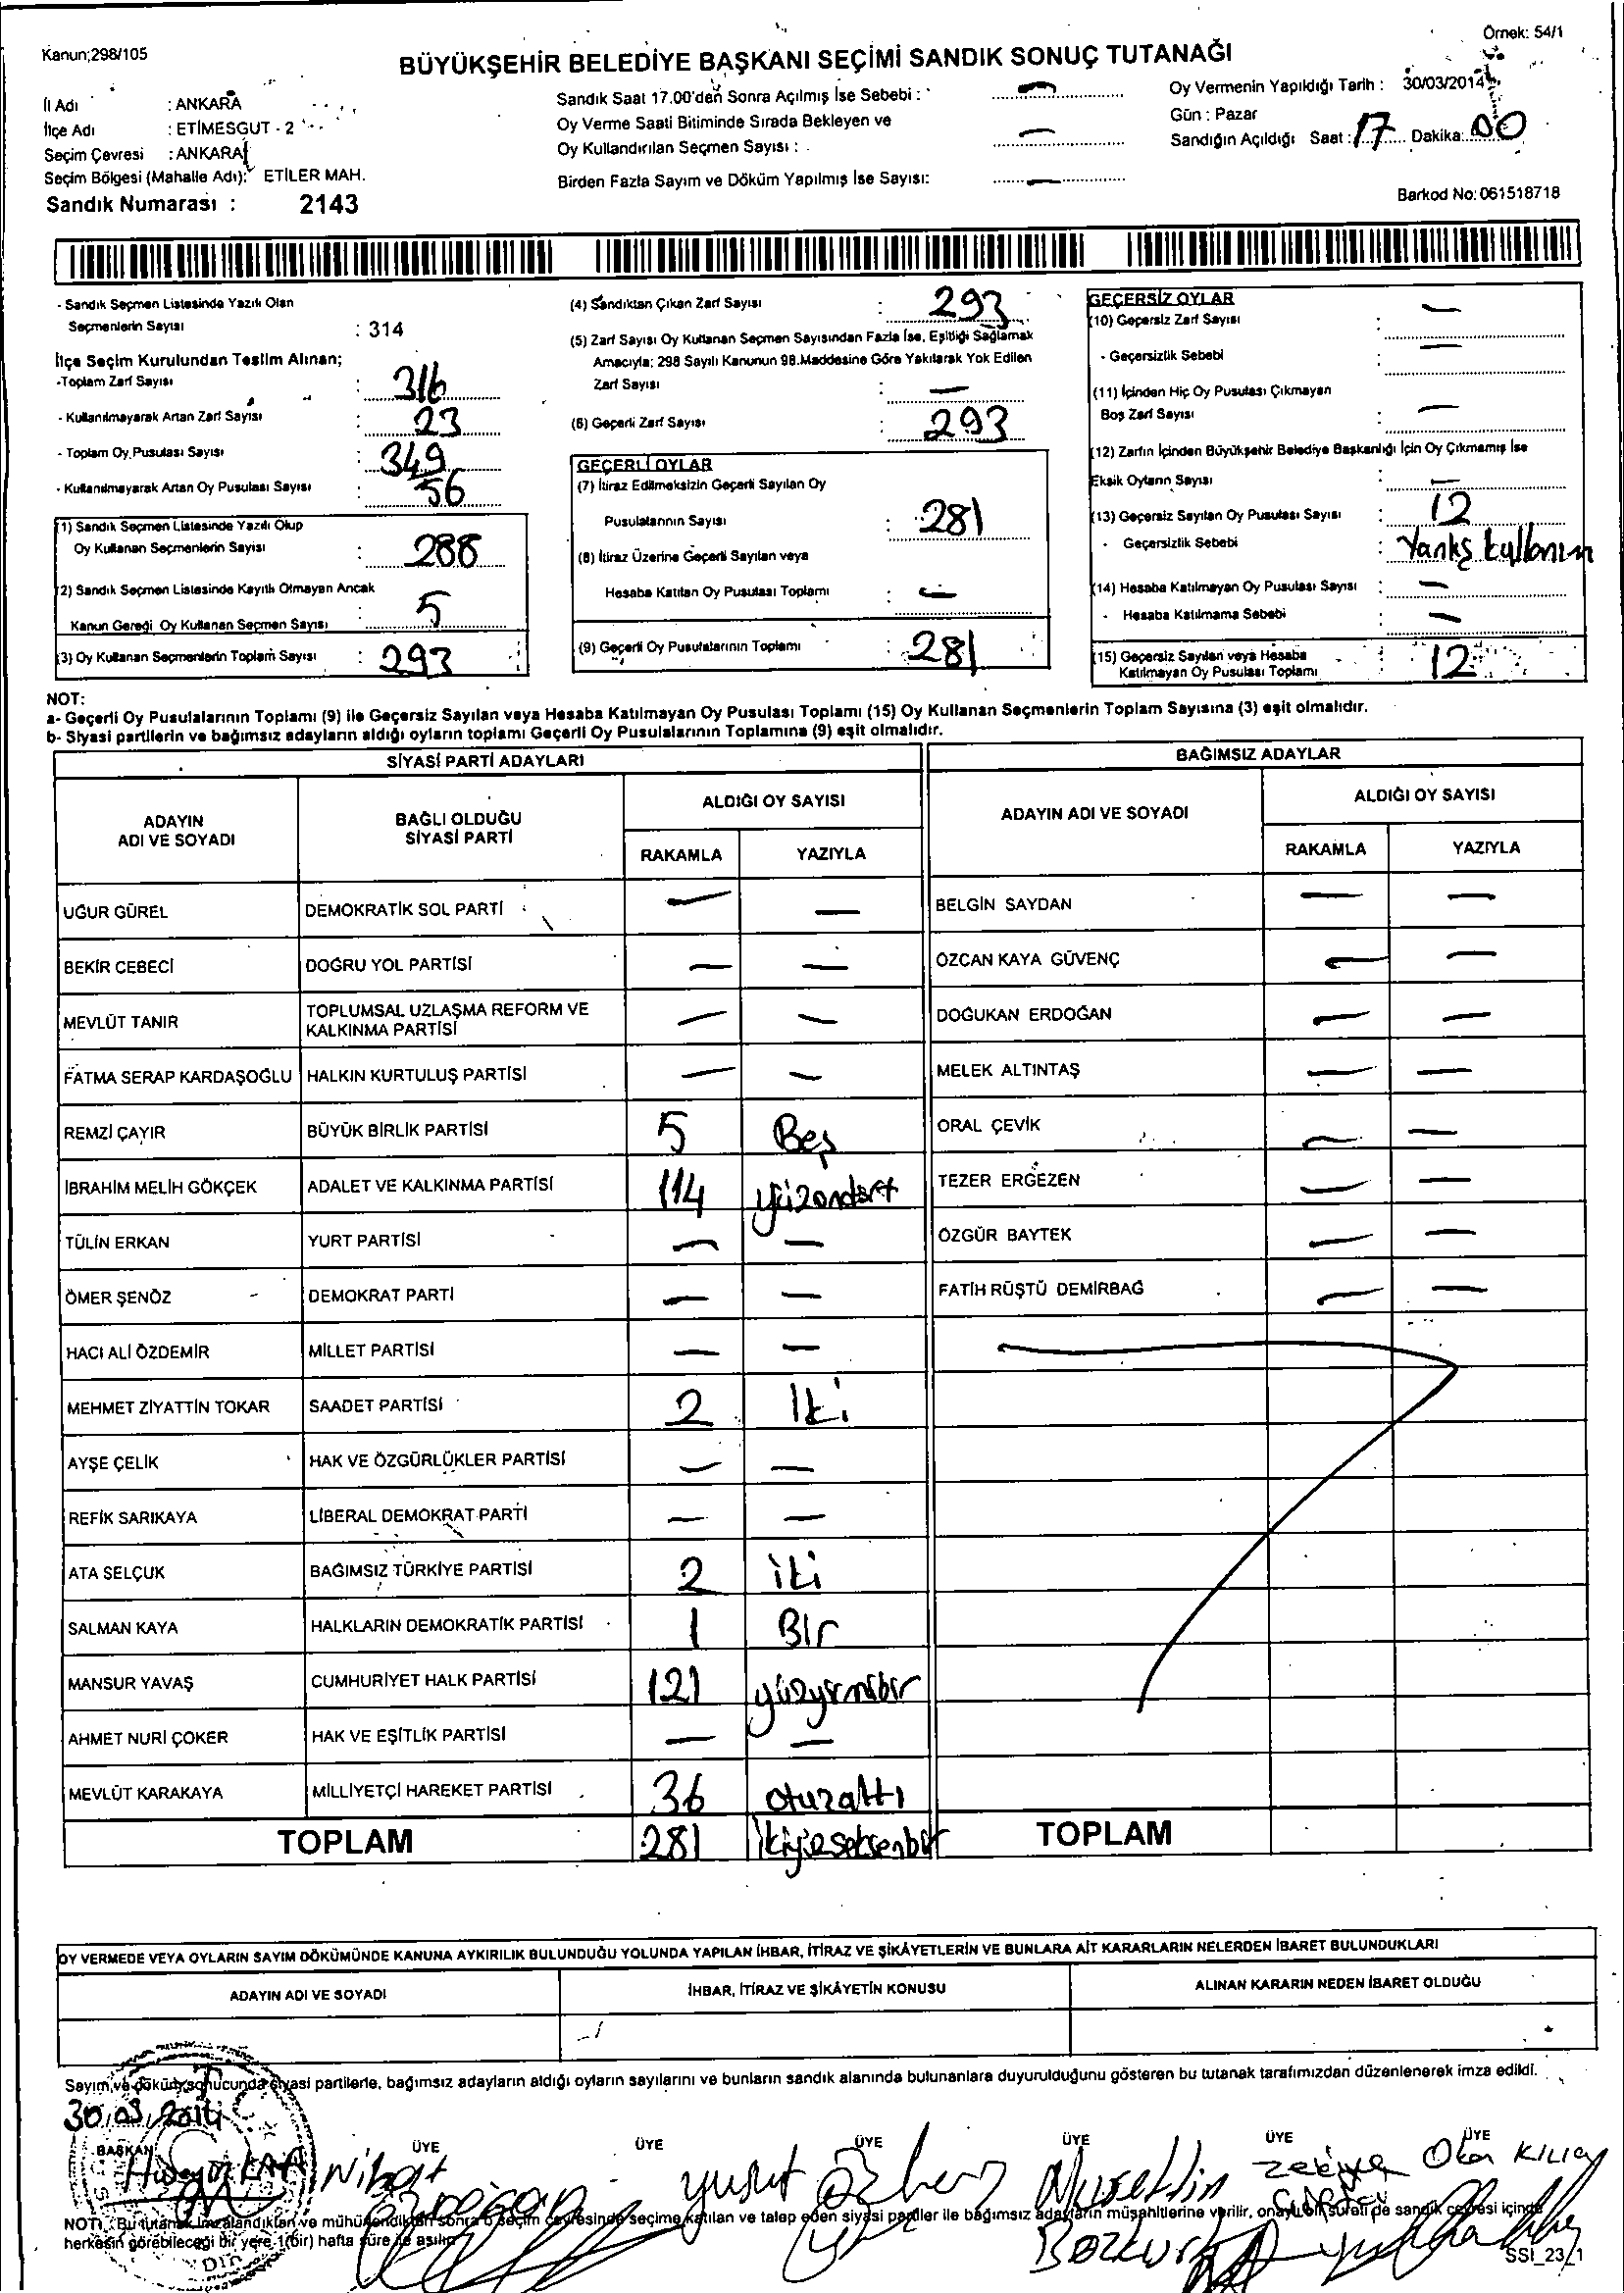 Kanun;298/105
Örnek: 54/1
BÜYÜKŞEHİR BELEDİYE BAŞKANI SEÇİMİ SANDIK SONUÇ TUTANAĞI
İl Adı : ANKARA
İlçe Adı : ETİMESGUT - 2
Seçim Çevresi : ANKARA
Seçim Bölgesi (Mahalle Adı): ETİLER MAH.
Sandık Numarası : 2143
Sandık Saat 17.00'den Sonra Açılmış İse Sebebi : —
Oy Verme Saati Bitiminde Sırada Bekleyen ve
Oy Kullandırılan Seçmen Sayısı : —
Birden Fazla Sayım ve Döküm Yapılmış İse Sayısı: —
Oy Vermenin Yapıldığı Tarih : 30/03/2014
Gün : Pazar
Sandığın Açıldığı Saat : 17 Dakika: 00
Barkod No: 061518718
- Sandık Seçmen Listesinde Yazılı Olan
Seçmenlerin Sayısı : 314
İlçe Seçim Kurulundan Teslim Alınan;
-Toplam Zarf Sayısı : 316
- Kullanılmayarak Artan Zarf Sayısı : 23
- Toplam Oy Pusulası Sayısı : 349
- Kullanılmayarak Artan Oy Pusulası Sayısı : 56
(1) Sandık Seçmen Listesinde Yazılı Olup
Oy Kullanan Seçmenlerin Sayısı : 288
(2) Sandık Seçmen Listesinde Kayıtlı Olmayan Ancak
Kanun Gereği Oy Kullanan Seçmen Sayısı : 5
(3) Oy Kullanan Seçmenlerin Toplam Sayısı : 293
(4) Sandıktan Çıkan Zarf Sayısı : 293
(5) Zarf Sayısı Oy Kullanan Seçmen Sayısından Fazla İse, Eşitliği Sağlamak
Amacıyla; 298 Sayılı Kanunun 98.Maddesine Göre Yakılarak Yok Edilen
Zarf Sayısı : —
(6) Geçerli Zarf Sayısı : 293
GEÇERLİ OYLAR
(7) İtiraz Edilmeksizin Geçerli Sayılan Oy
Pusulalarının Sayısı : 281
(8) İtiraz Üzerine Geçerli Sayılan veya
Hesaba Katılan Oy Pusulası Toplamı : —
(9) Geçerli Oy Pusulalarının Toplamı : 281
GEÇERSİZ OYLAR
(10) Geçersiz Zarf Sayısı : —
- Geçersizlik Sebebi : —
(11) İçinden Hiç Oy Pusulası Çıkmayan
Boş Zarf Sayısı : —
(12) Zarfın İçinden Büyükşehir Belediye Başkanlığı İçin Oy Çıkmamış İse
Eksik Oyların Sayısı : —
(13) Geçersiz Sayılan Oy Pusulası Sayısı : 12
- Geçersizlik Sebebi : Yanlış kullanım
(14) Hesaba Katılmayan Oy Pusulası Sayısı : —
- Hesaba Katılmama Sebebi : —
(15) Geçersiz Sayılan veya Hesaba
Katılmayan Oy Pusulası Toplamı : 12
NOT:
a- Geçerli Oy Pusulalarının Toplamı (9) ile Geçersiz Sayılan veya Hesaba Katılmayan Oy Pusulası Toplamı (15) Oy Kullanan Seçmenlerin Toplam Sayısına (3) eşit olmalıdır.
b- Siyasi partilerin ve bağımsız adayların aldığı oyların toplamı Geçerli Oy Pusulalarının Toplamına (9) eşit olmalıdır.
SİYASİ PARTİ ADAYLARI
ADAYIN ADI VE SOYADI BAĞLI OLDUĞU SİYASİ PARTİ ALDIĞI OY SAYISI
RAKAMLA YAZIYLA
UĞUR GÜREL DEMOKRATİK SOL PARTİ — —
BEKİR CEBECİ DOĞRU YOL PARTİSİ — —
MEVLÜT TANIR TOPLUMSAL UZLAŞMA REFORM VE KALKINMA PARTİSİ — —
FATMA SERAP KARDAŞOĞLU HALKIN KURTULUŞ PARTİSİ — —
REMZİ ÇAYIR BÜYÜK BİRLİK PARTİSİ 5 Beş
İBRAHİM MELİH GÖKÇEK ADALET VE KALKINMA PARTİSİ 114 yüzondört
TÜLİN ERKAN YURT PARTİSİ — —
ÖMER ŞENÖZ DEMOKRAT PARTİ — —
HACI ALİ ÖZDEMİR MİLLET PARTİSİ — —
MEHMET ZİYATTİN TOKAR SAADET PARTİSİ 2 İki
AYŞE ÇELİK HAK VE ÖZGÜRLÜKLER PARTİSİ — —
REFİK SARIKAYA LİBERAL DEMOKRAT PARTİ — —
ATA SELÇUK BAĞIMSIZ TÜRKİYE PARTİSİ 2 iki
SALMAN KAYA HALKLARIN DEMOKRATİK PARTİSİ 1 Bir
MANSUR YAVAŞ CUMHURİYET HALK PARTİSİ 121 yüzyirmibir
AHMET NURİ ÇOKER HAK VE EŞİTLİK PARTİSİ — —
MEVLÜT KARAKAYA MİLLİYETÇİ HAREKET PARTİSİ 36 otuzaltı
TOPLAM 281 ikiyüzseksenbir
BAĞIMSIZ ADAYLAR
ADAYIN ADI VE SOYADI ALDIĞI OY SAYISI
RAKAMLA YAZIYLA
BELGİN SAYDAN — —
ÖZCAN KAYA GÜVENÇ — —
DOĞUKAN ERDOĞAN — —
MELEK ALTINTAŞ — —
ORAL ÇEVİK — —
TEZER ERGEZEN — —
ÖZGÜR BAYTEK — —
FATİH RÜŞTÜ DEMİRBAĞ — —
TOPLAM
OY VERMEDE VEYA OYLARIN SAYIM DÖKÜMÜNDE KANUNA AYKIRILIK BULUNDUĞU YOLUNDA YAPILAN İHBAR, İTİRAZ VE ŞİKÂYETLERİN VE BUNLARA AİT KARARLARIN NELERDEN İBARET BULUNDUKLARI
ADAYIN ADI VE SOYADI İHBAR, İTİRAZ VE ŞİKÂYETİN KONUSU ALINAN KARARIN NEDEN İBARET OLDUĞU
Sayım ve döküm sonucunda siyasi partilerle, bağımsız adayların aldığı oyların sayılarını ve bunların sandık alanında bulunanlara duyurulduğunu gösteren bu tutanak tarafımızdan düzenlenerek imza edildi.
30.03.2014
BAŞKAN ÜYE ÜYE ÜYE ÜYE ÜYE ÜYE
Nihat yusuf Nurettin Zekiye
Bozkurt
NOT: Bu tutanak imzalandıktan ve mühürlendikten sonra o seçim çevresinde seçime katılan ve talep eden siyasi partiler ile bağımsız adayların müşahitlerine verilir, onaylı bir sureti de sandık çevresi içinde
herkesin görebileceği bir yere 1(bir) hafta süre ile asılır.
SSI_23_1